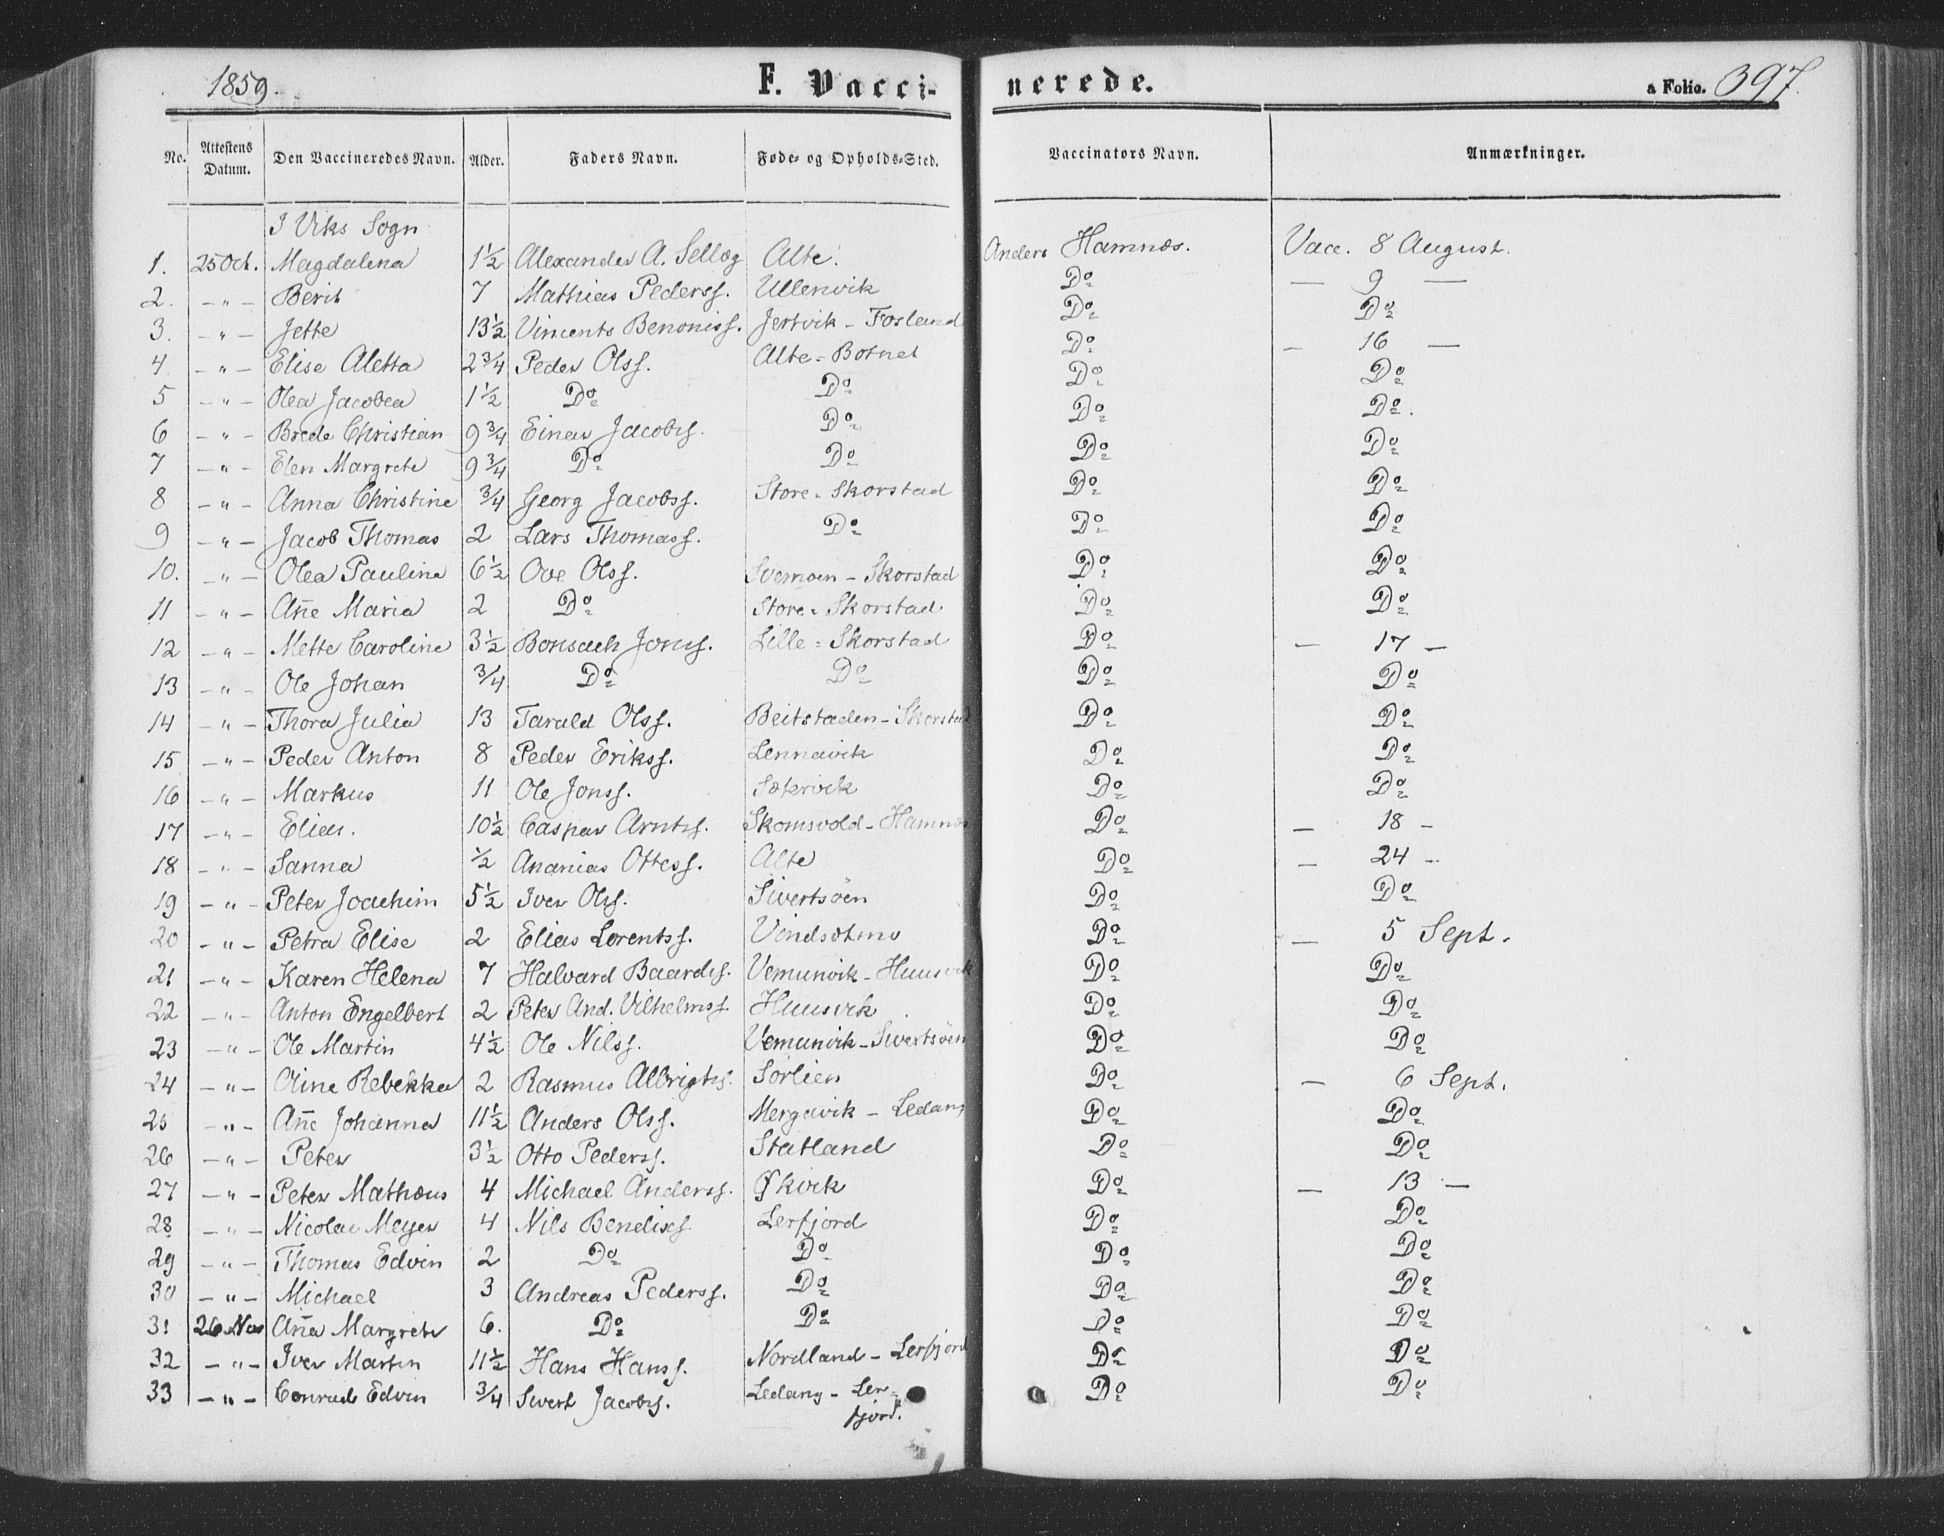 1859. F. Vacci- nerede. a Folio. 397.
No. Attestens Datum. Den Vaccineredes Navn. Alder. Faders Navn. Føde- og Opholds-Sted. Vaccinators Navn. Anmærkninger.
I Viks Sogn
1. 25 Oct. Magdalena 1½ Alexander A. Sellæg Alte. Anders Hamnæs. Vacc. 8 August.
2. -"- Berit 7 Mathias Pederss. Ullenvik Do — 9 —
3. -"- Jette 13½ Vincents Benoniss. Jertvik - Fosland Do Do
4. -"- Elise Aletta 2¾ Peder Olss. Alte - Botnet Do — 16 —
5 -"- Olea Jacobea 1½ Do Do Do Do
6 -"- Brede Christian 9¾ Einar Jacobss. Do Do Do.
7 -"- Elen Margrete 9¾ Do Do Do Do
8 -"- Anna Christine ¾ Georg Jacobss. Store-Skorstad Do Do
9 -"- Jacob Thomas 2 Lars Thomass. Do Do Do
10. -"- Olea Paulina 6½ Ove Olss. Svemoen - Skorstad Do Do
11 -"- Ane Maria 2 Do Store-Skorstad Do Do
12 -"- Mette Caroline 3½ Bonsach Jonss. Lille-Skorstad Do — 17 —
13 -"- Ole Johan ¾ Do Do Do Do
14 -"- Thora Julia 13 Tarald Olss. Beitstaden - Skorstad Do Do
15 -"- Peder Anton 8 Peder Erikss. Lennavik Do Do
16 -"- Markus 11 Ole Jonss. Sætervik Do Do
17 -"- Elias. 10½ Caspar Arntss. Skomsvold - Hamnæs Do — 18 -
18 -"- Sanna ½ Ananias Ottess. Alte Do — 24 -
19 -"- Peter Joachim 5½ Iver Olss. Sivertsöen Do Do
20 -"- Petra Elise 2 Elias Lorentss. Vindsætmo Do — 5 Sept.
21 -"- Karen Helena 7 Halvard Baardss. Vemunvik - Huusvik Do Do
22 -"- Anton Engelbert 2 Peter And. Vilhelmss. Huusvik Do Do
23 -"- Ole Martin 4½ Ole Nilss. Vemunvik - Sivertsöen Do Do
24 -"- Oline Rebekka 2 Rasmus Albrigtss. Sörlien Do — 6 Sept.
25 -"- Ane Johanna 11½ Anders Olss. Mergavik - Ledang Do Do
26 -"- Peter 3½ Otto Pederss. Statland Do Do
27 -"- Peter Mathæus 4 Michael Anderss. Økvik Do — 13 —
28 -"- Nicolai Meyer 4 Nils Bendixs. Lerfjord Do Do
29 -"- Thomas Edvin 2 Do Do Do Do
30 -"- Michael 3 Andreas Pederss. Do Do Do
31 26 Nov Ana Margrete 6. Do Do Do Do
32 -"- Iver Martin 11½ Hans Hanss. Nordland - Lerfjord Do Do
33 -"- Conrad Edvin ¾ Sivert Jacobss. Ledang - Ler- Do Do
fjord.